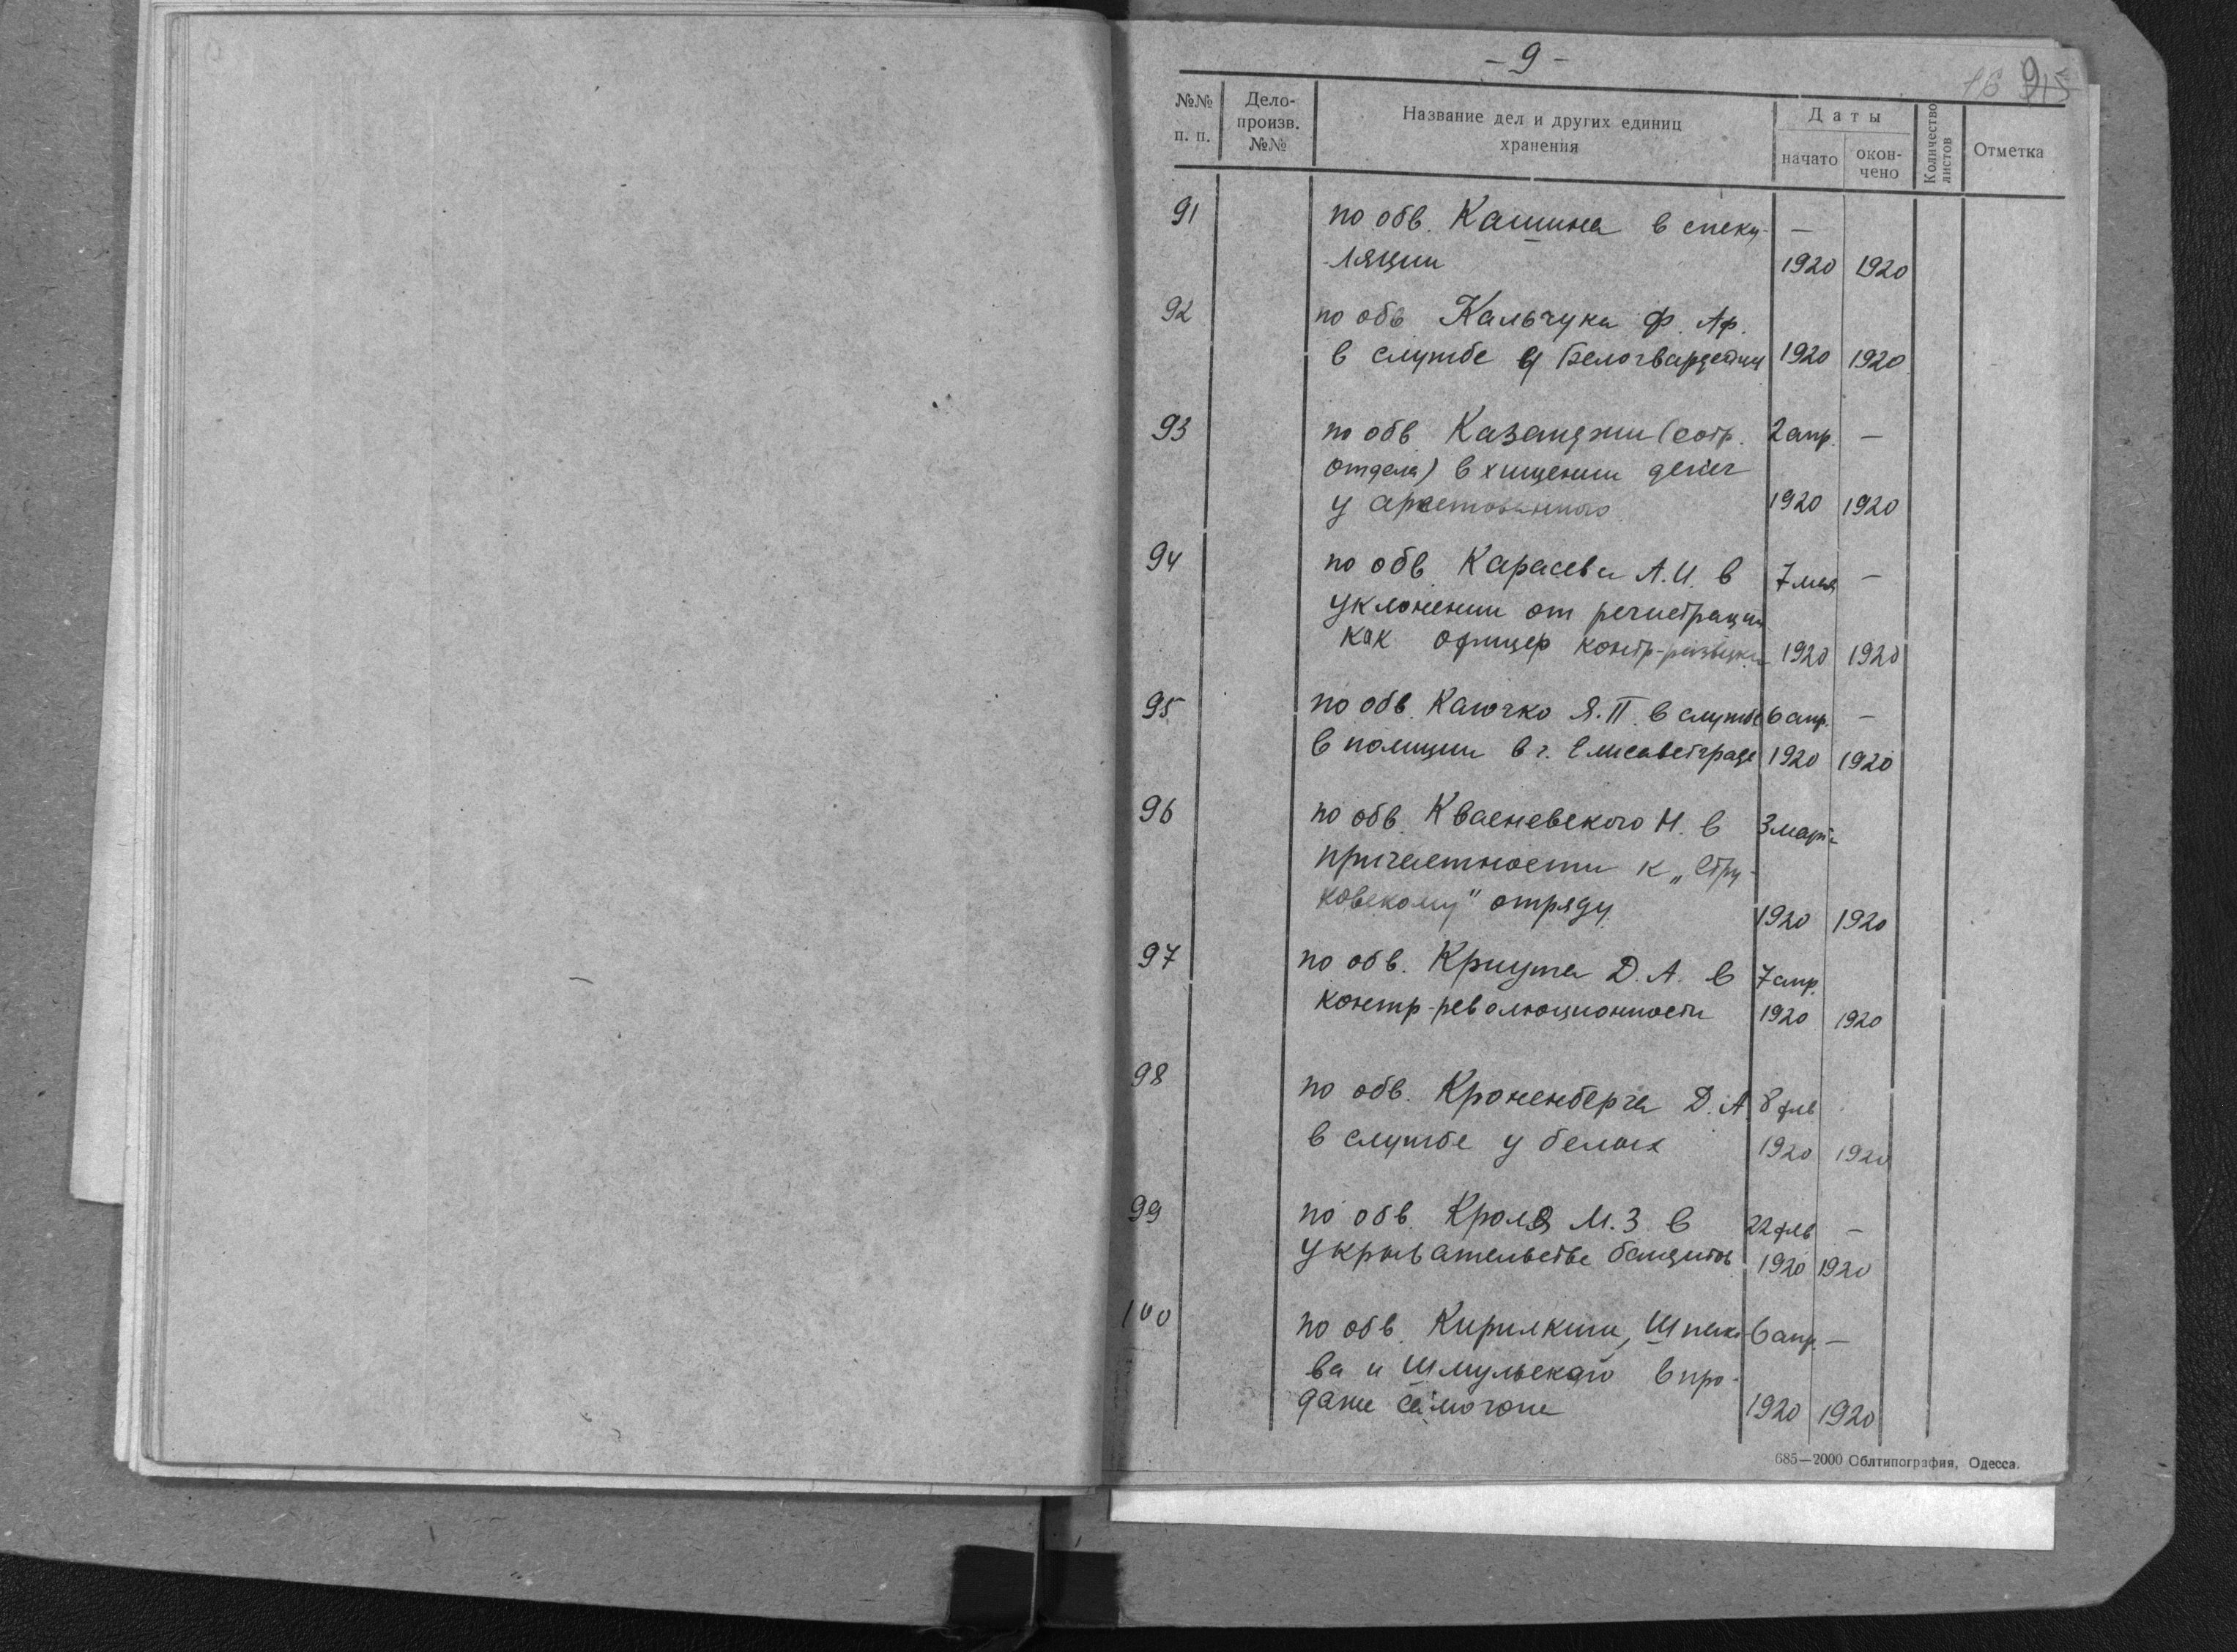 - 9 -
16 9
№№ п. п.
Дело-произв. №№
Название дел и других единиц
хранения
Даты
начато
окон-
чено
Количество листов
Отметка
91 по обв. Кашина в спеку- —
ляции 1920 1920
92 по обв Кальчука Ф. Аф.
в службе у Белогвардейцы 1920 1920
93 по обв Казанджи (сотр. 2 апр. —
отдела) в хищении денег
у арестованного 1920 1920
94 по обв. Карасева А.И. в 7 мая —
уклонении от регистрации
как офицер контр-разведки 1920 1920
95 по обв. Каючко Я.П. в службе 6 апр. —
в полиции в г. Елисаветграде 1920 1920
96 по обв. Квасневского Н. в 3 марта
причастности к „Стру-
ковскому" отряду 1920 1920
97 по обв. Криута Д. А. в 7 апр.
контр-революционности 1920 1920
98 по обв. Кроненберга Д. А 8 фев
в службе у белых 1920 1920
99 по обв. Кроля М. З в 22 фев —
укрывательстве бандитов 1920 1920
100 по обв. Кирилкина, 6 апр. —
ва и Шмульского в про-
даже самогона 1920 1920
685—2000 Облтипография, Одесса.